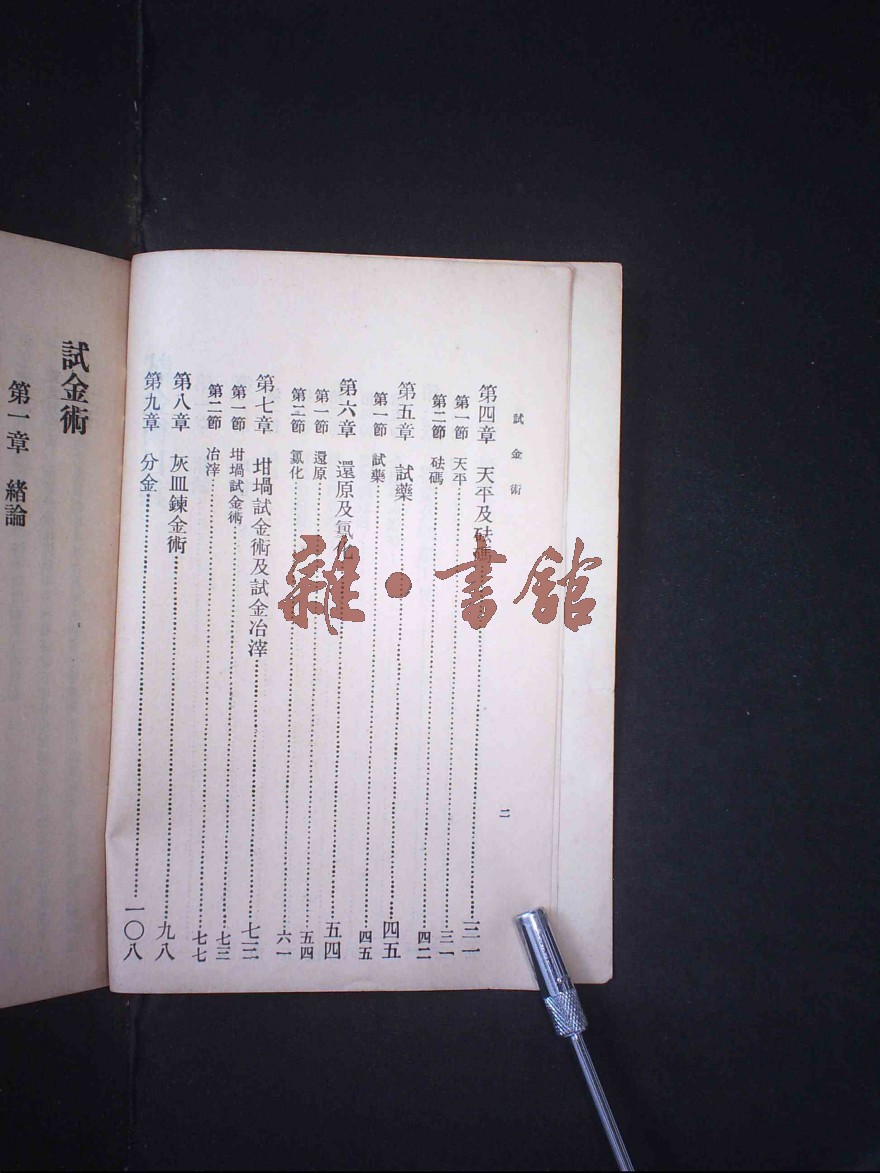 試金術
二
第四章　天平及砝碼……三一
第一節　天平……三一
第二節　砝碼……四二
第五章　試藥……四五
第一節　試藥……四五
第六章　還原及氧化……五四
第一節　還原……五四
第二節　氯化……六一
第七章　坩堝試金術及試金冶滓……七三
第一節　坩堝試金術……七三
第二節　冶滓……七七
第八章　灰皿鍊金術……九八
第九章　分金……一〇八
試金術
第一章　緒論
雜·書館